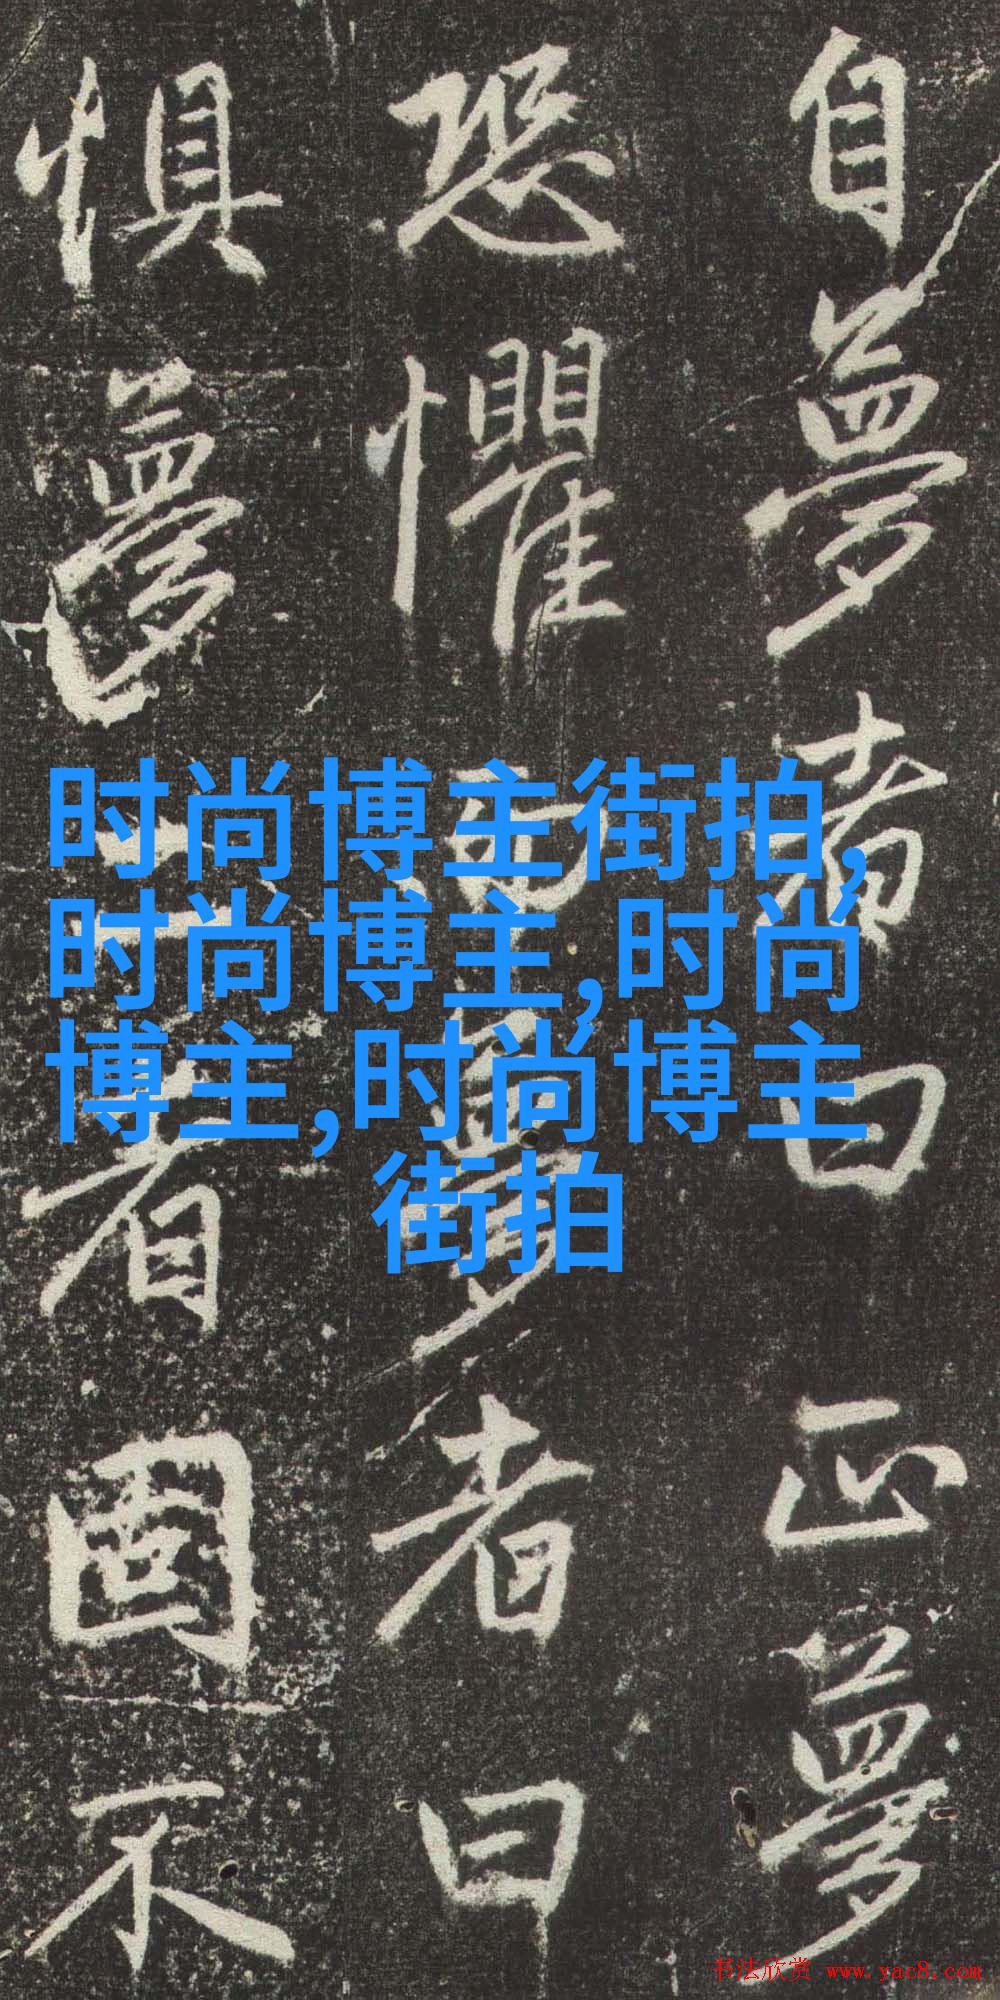 自夢者曰正夢
恐懼夢者曰
惧夢者固不
时尚博主街拍,
时尚博主,时尚
博主,时尚博主
街拍
书法欣赏 www.yac8.com